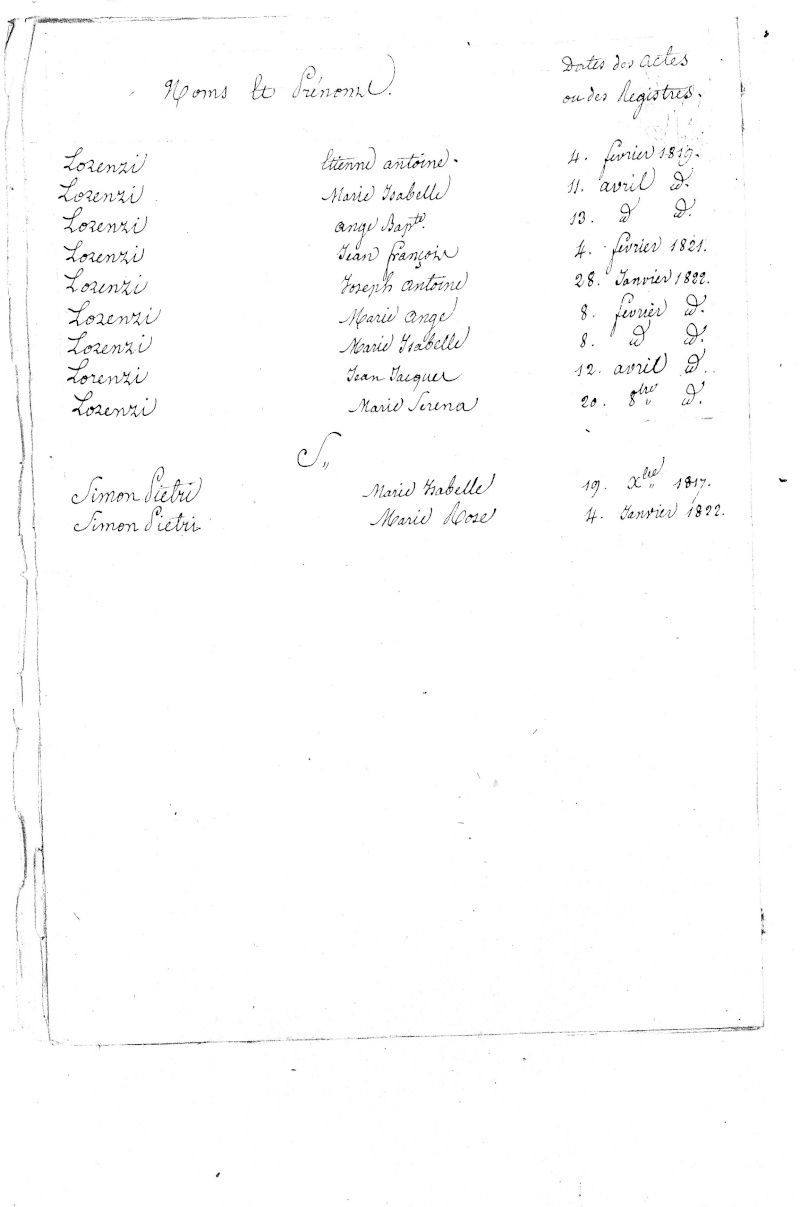 Noms et Prénoms.
Dates des actes
ou des Registres.
Lorenzi Etienne antoine. 4. février 1819.
Lorenzi Marie Isabelle 11. avril d.
Lorenzi ange Bapte. 13. d d.
Lorenzi Jean françois 4. février 1821.
Lorenzi Joseph antoine 28. Janvier 1822.
Lorenzi Marie ange 8. février d.
Lorenzi Marie Isabelle 8. d d.
Lorenzi Jean Jacques 12. avril d.
Lorenzi Marie Serena 20. 8bre d.
S„
Simon Pietri Marie Isabelle 19. Xbre 1817.
Simon Pietri Marie Rose 4. Janvier 1822.